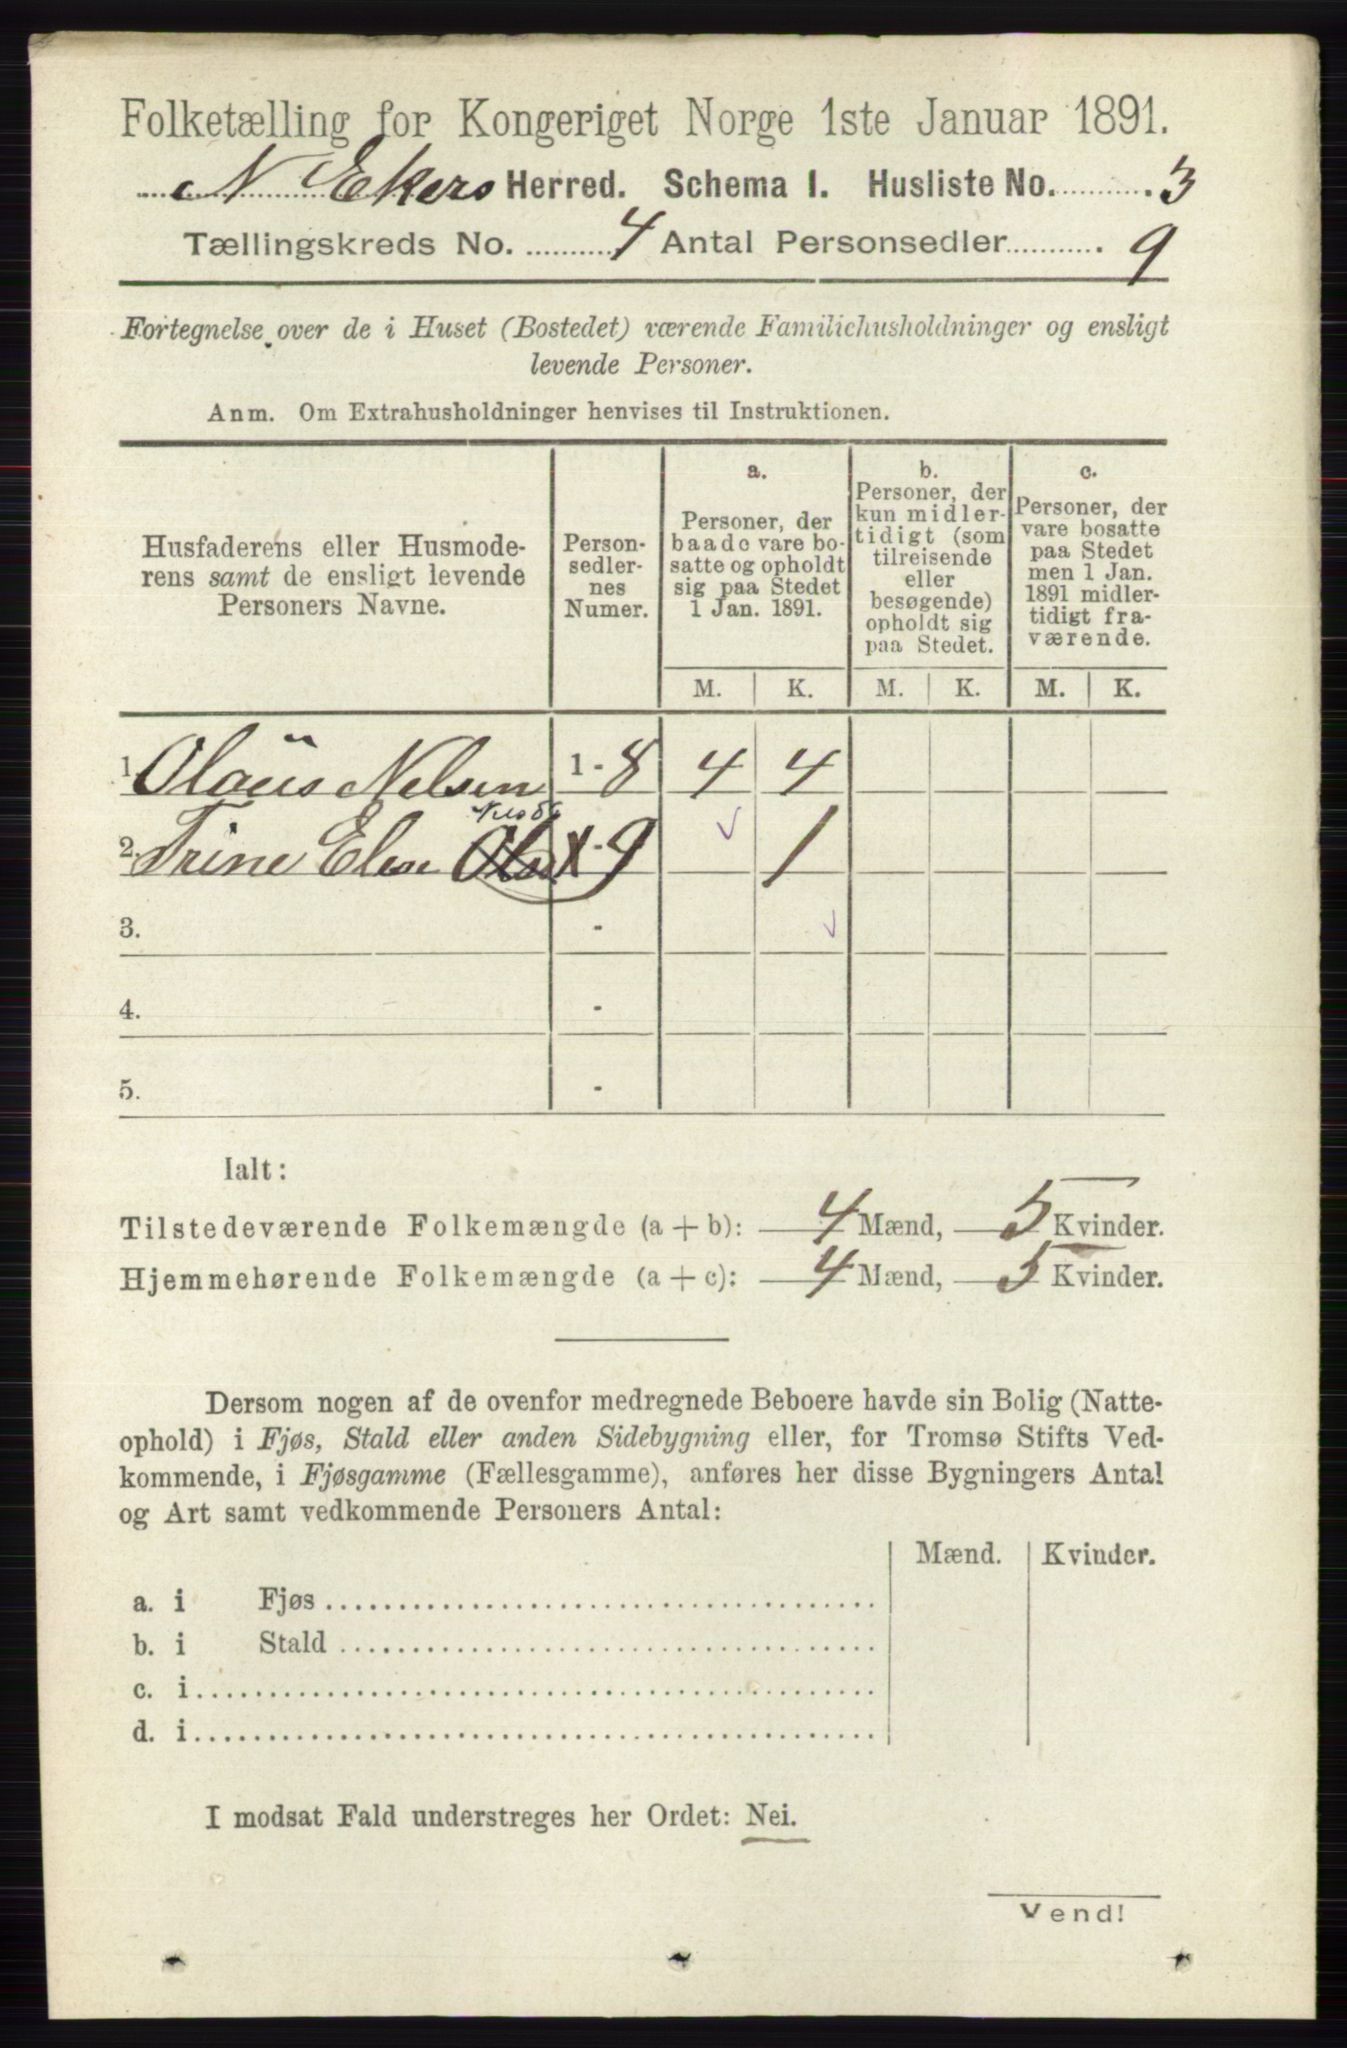 Folketælling for Kongeriget Norge 1ste Januar 1891.
N Ekers Herred. Schema I. Husliste No. 3
Tællingskreds No. 4 Antal Personsedler 9
Fortegnelse over de i Huset (Bostedet) værende Familiehusholdninger og ensligt
levende Personer.
Anm. Om Extrahusholdninger henvises til Instruktionen.
Husfaderens eller Husmode-
rens samt de ensligt levende
Personers Navne.
Person-
sedler-
nes
Numer.
a.
Personer, der
baade vare bo-
satte og opholdt
sig paa Stedet
1 Jan. 1891.
b.
Personer, der
kun midler-
tidigt (som
tilreisende
eller
besøgende)
opholdt sig
paa Stedet.
c.
Personer, der
vare bosatte
paa Stedet
men 1 Jan.
1891 midler-
tidigt fra-
værende.
M. K. M. K. M. K.
1. Olaus Nelsen 1 - 8 4 4
2. Trine Else - 9 1
3. -
4. -
5. -
Ialt:
Tilstedeværende Folkemængde (a + b): 4 Mænd, 5 Kvinder.
Hjemmehørende Folkemængde (a + c): 4 Mænd, 5 Kvinder.
Dersom nogen af de ovenfor medregnede Beboere havde sin Bolig (Natte-
ophold) i Fjøs, Stald eller anden Sidebygning eller, for Tromsø Stifts Ved-
kommende, i Fjøsgamme (Fællesgamme), anføres her disse Bygningers Antal
og Art samt vedkommende Personers Antal:
Mænd. Kvinder.
a. i Fjøs
b. i Stald
c. i
d. i
I modsat Fald understreges her Ordet: Nei.
Vend!